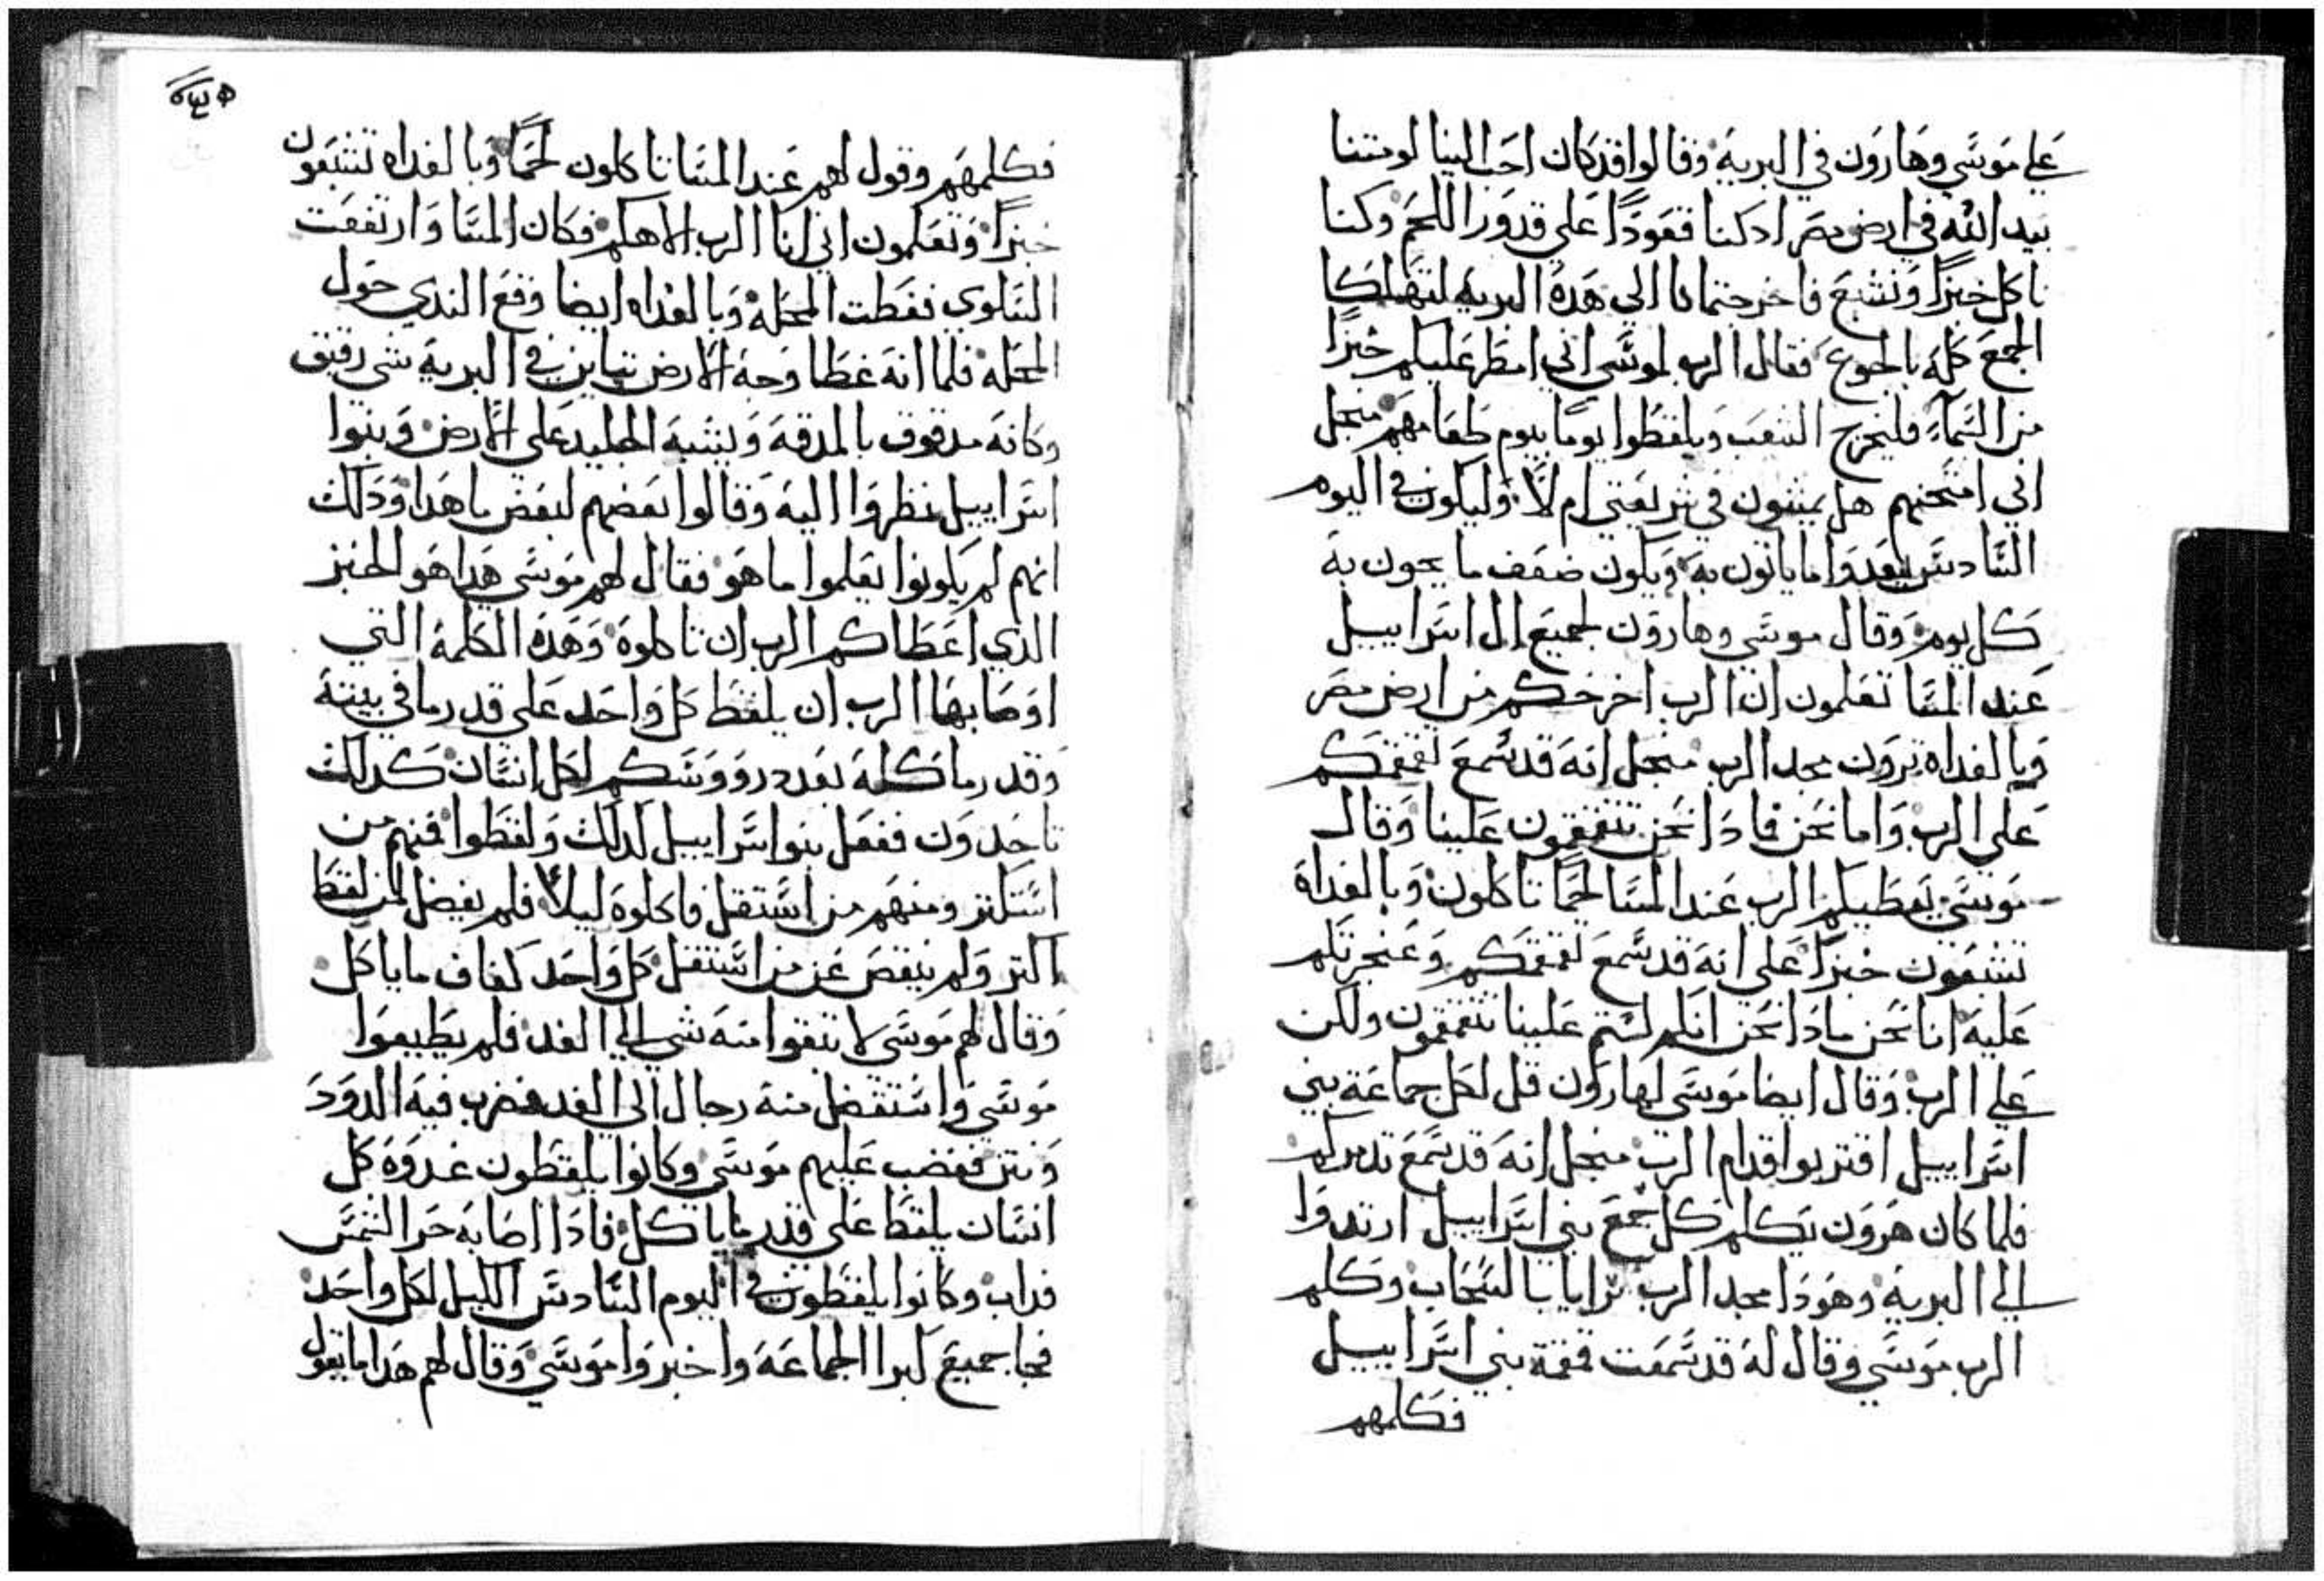 علي موسي وهارون في البرية وقالوا قد كان احب الينا لو متنا
بيد الله في ارض مصر اد كنا قعودا علي قدور اللحم وكنا
ناكل خبزا ونشبع فاخرجتمانا الي هده البرية لتهلكا
الجمع كله بالجوع فقال الرب لموسي اني امطر عليكم خبزا
من السماء فليخرج الشعب ويلقطوا يوما بيوم طعامهم منجل
اني امتحنهم هل يمشون في شريعتي ام لا وليكون في اليوم
السادس يعدوا ما ياتون به ويكون ضعف ما يجون به
كل يوم وقال موسي وهارون لجميع ال اسراييل
عند المسا تعلمون ان الرب اخرجكم من ارض مصر
وبالغداه ترون مجد الرب منجل انه قد سمع تقمقمكم
علي الرب واما نحن فادا نحن تتقمقمون علينا وقال
موسي يعطيكم الرب عند المسا لحما تاكلون وبالغداة
تشبعون خبزا علي انه قد سمع تقمقمكم وعنجرتكم
عليه انا نحن مادا نحن انكم لستم علينا تتقمقمون ولكن
علي الرب وقال ايضا موسي لهارون قل لكل جماعة بني
اسراييل اقتربوا قدام الرب منجل انه قد سمع تدمركم
فلما كان هرون يكلم كل جمع بني اسراييل ارتدوا
الي البرية وهودا مجد الرب ترايا بالسحاب وكلم
الرب موسي وقال له قد سمعت قمقمة بني اسراييل
فكلمهم
فكلمهم وقول لهم عند المسا تاكلون لحما وبالغداه تشبعون
خبزا وتعلمون اني انا الرب الاهكم فكان المسا وارتفعت
السلوي فغطت المحلة وبالغداه ايضا وقع الندي حول
المحلة فلما انه غطا وجه الارض تباين في البرية شي رقيق
وكانه مدقوق بالمدقة ويشبه الجليد علي الارض وبنوا
اسراييل نظروا اليه وقالوا بعضهم لبعض ما هدا ودلك
انهم لم يكونوا يعلموا ما هو فقال لهم موسي هدا هو الخبز
الدي اعطاكم الرب ان تاكلوة وهده الكلمة التي
اوصا بها الرب ان يلقط كل واحد علي قدر ما في بيته
وقدر ما كله بعدد رووسكم لكل انسان كدلك
تاخدون ففعل بنوا اسراييل كدلك ولقطوا فمنهم من
استكتر ومنهم من استقل فاكلوة ليلا فلم يفضل لمن لقط
اكتر ولم ينقص عن من استقل كل واحد كفاف ما ياكل
وقال لهم موسي لا تبقوا منه شي الي الغد فلم يطيعوا
موسي واستفضل منه رجال الي الغد فضرب فيه الدود
ونتن فغضب عليهم موسي وكانوا يلقطون غدوة كل
انسان يلقط علي قدر ما ياكل فادا اصابه حر الشمس
فداب وكانوا يلقطون في اليوم السادس الكيل لكل واحد
فجا جميع كبرا الجماعة واخبروا موسي وقال لهم هدا ما يقول